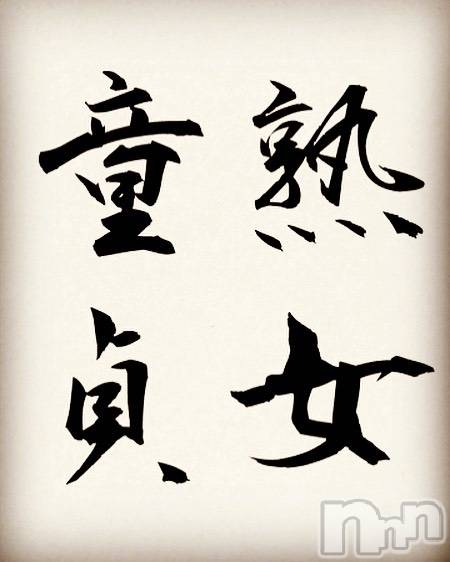 熟女
童貞
nnn